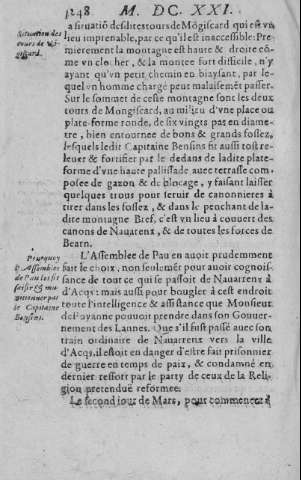 1248 M. DC. XXI.
Situation des
tours de Mō-
giscard.
a situatiō desdites tours de Mōgiscard qui est vn
lieu imprenable, par ce qu'il est inaccessible: Pre-
mierement la montagne est haute & droite cō-
me vn clocher, & la montee fort difficile, n'y
ayant qu'vn petit chemin en biaysant, par le-
quel vn homme chargé peut malaisemēt passer.
Sur le sommet de ceste montagne sont les deux
tours de Mongiscard, au milieu d'vne place ou
plate-forme ronde, de six vingts pas en diame-
tre, bien entournee de bons & grands fossez,
lesquels ledit Capitaine Bensins fit aussi tost re-
leuer & fortifier par le dedans de ladite plate-
forme d'vne haute pallissade auec terrasse com-
posee de gazon & de blocage, y faisant laisser
quelques trous pour seruir de canonnieres à
tirer dans les fossez, & dans le penchant de la-
dite montagne Bref, c'est vn lieu à couuert des
canons de Nauarrenx, & de toutes les forces de
Bearn.
Pourquoy
l'Assemblee
de Pau les fit
saisir & mu-
nitionner par
le Capitaine
Bensins.
L'Assemblee de Pau en auoit prudemment
fait le choix, non seulemēt pour auoir cognois-
sance de tout ce qui se passoit de Nauarrenx à
d'Acqs: mais aussi pour boucler à cest endroit
toute l'intelligence & assistance que Monsieur
de Poyanne pouuoit prendre dans son Gouuer-
nement des Lannes. Que s'il fust passé auec son
train ordinaire de Nauarrenx vers la ville
d'Acqs, il estoit en danger d'estre fait prisonnier
de guerre en temps de paix, & condamné en
dernier ressort par le party de ceux de la Reli-
gion pretenduë reformee.
Le second iour de Mars, pour commencer à